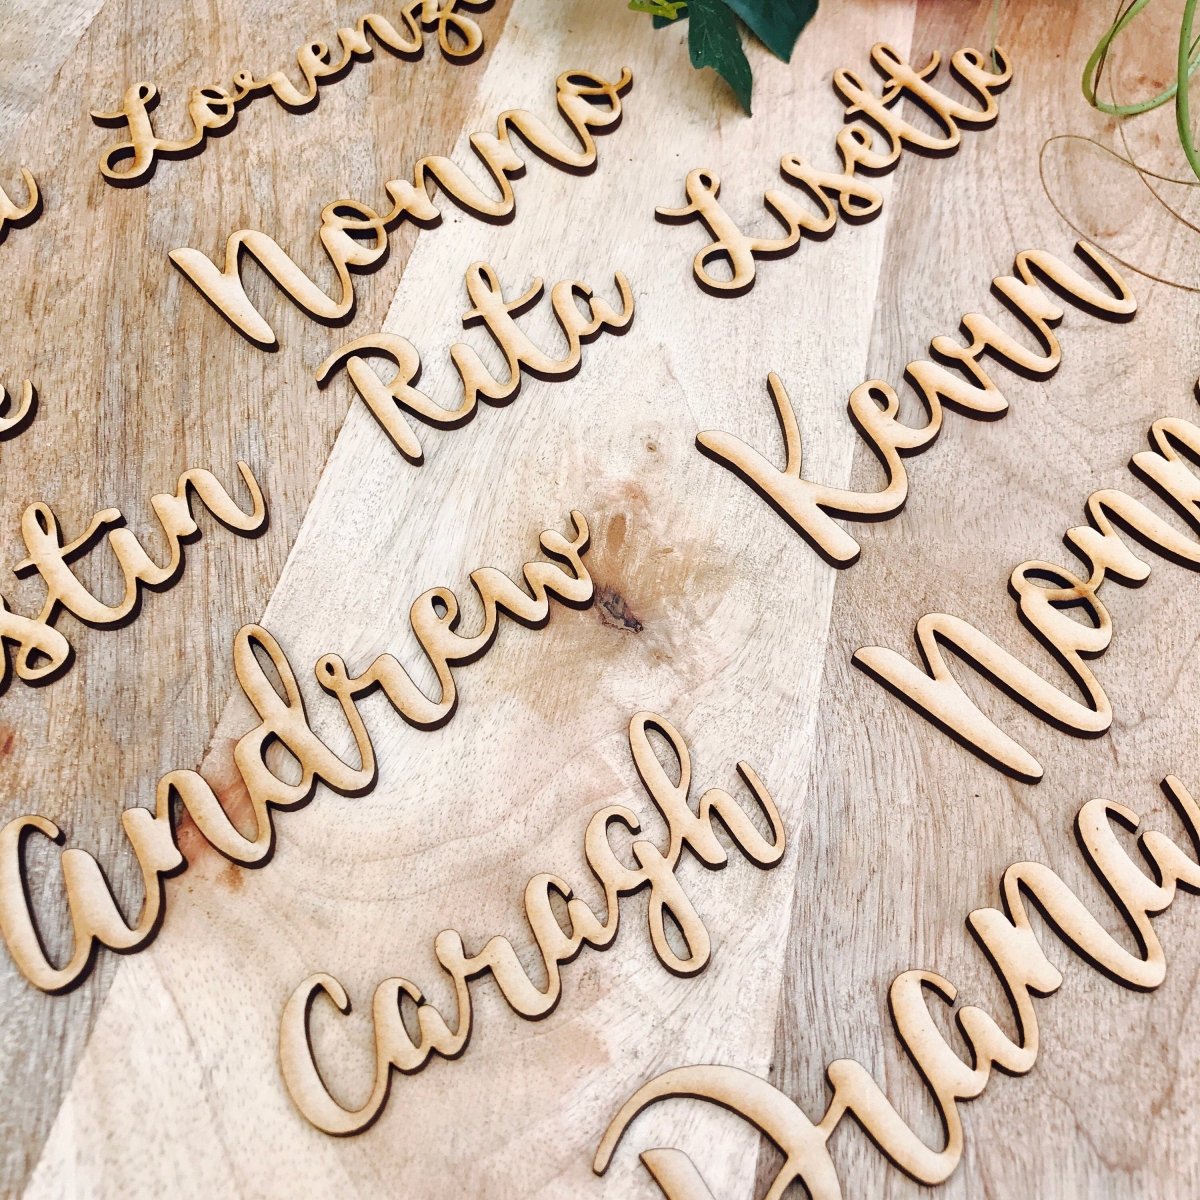 Lorenz
Nonno
Lisette
Rita
Kevin
stin
Nonn
andrew
Caragh
Diana